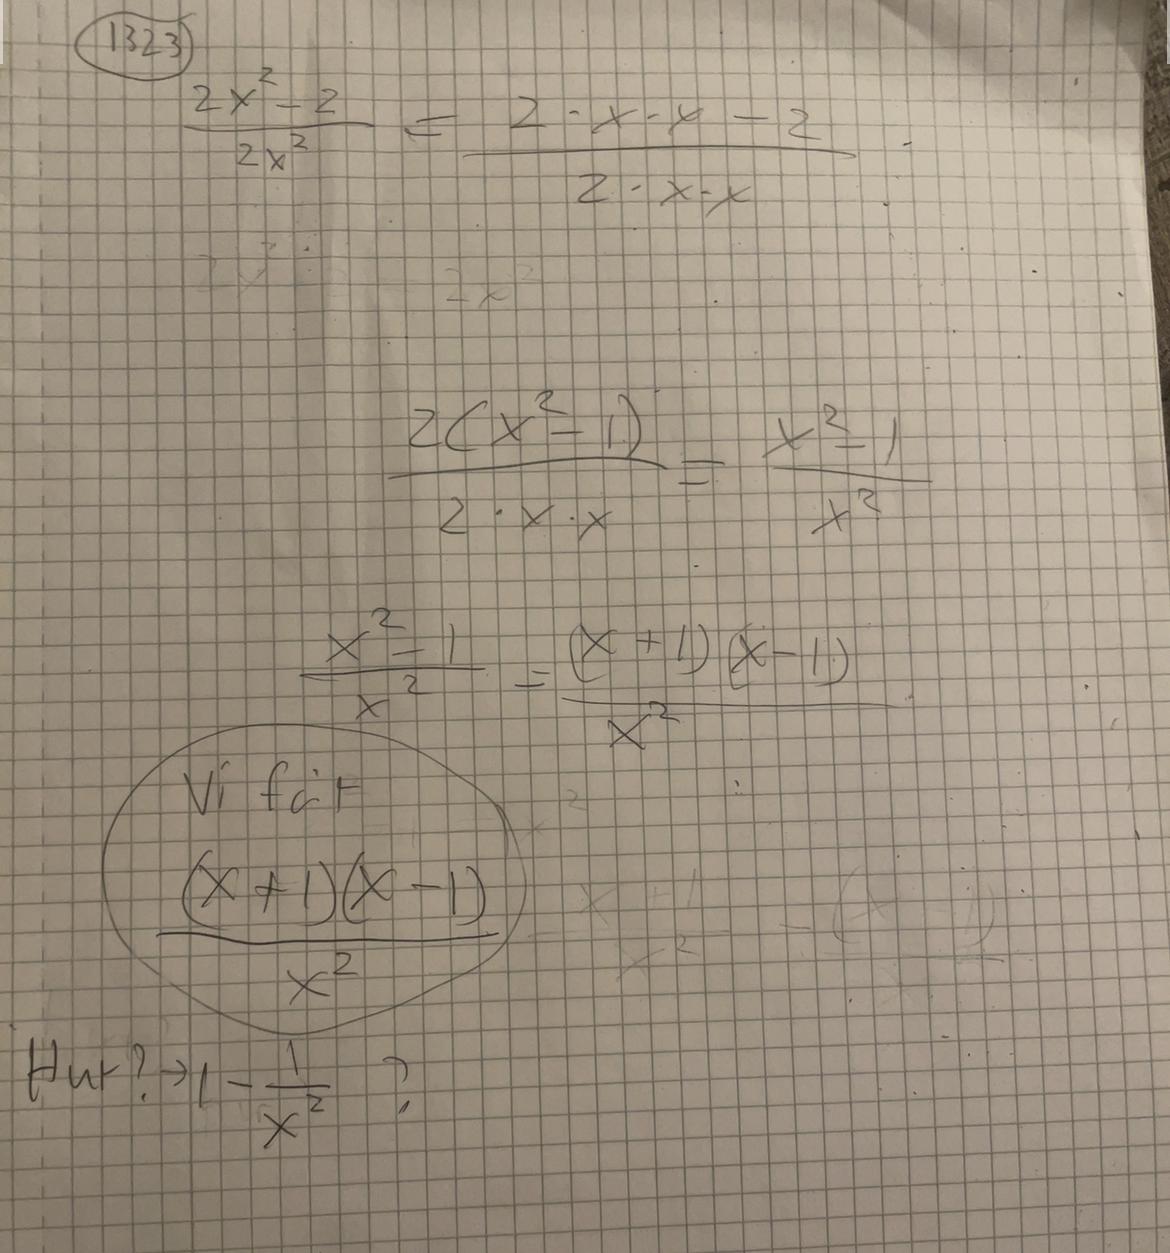 1323
2x² - 2 / 2x² = 2 · x · x - 2 / 2 · x · x
2x²
2(x² - 1) / 2 · x · x = x² - 1 / x²
x² - 1 / x² = (x + 1) (x - 1) / x²
Vi får
(x + 1)(x - 1) / x²
Hur? → 1 - 1 / x² ?